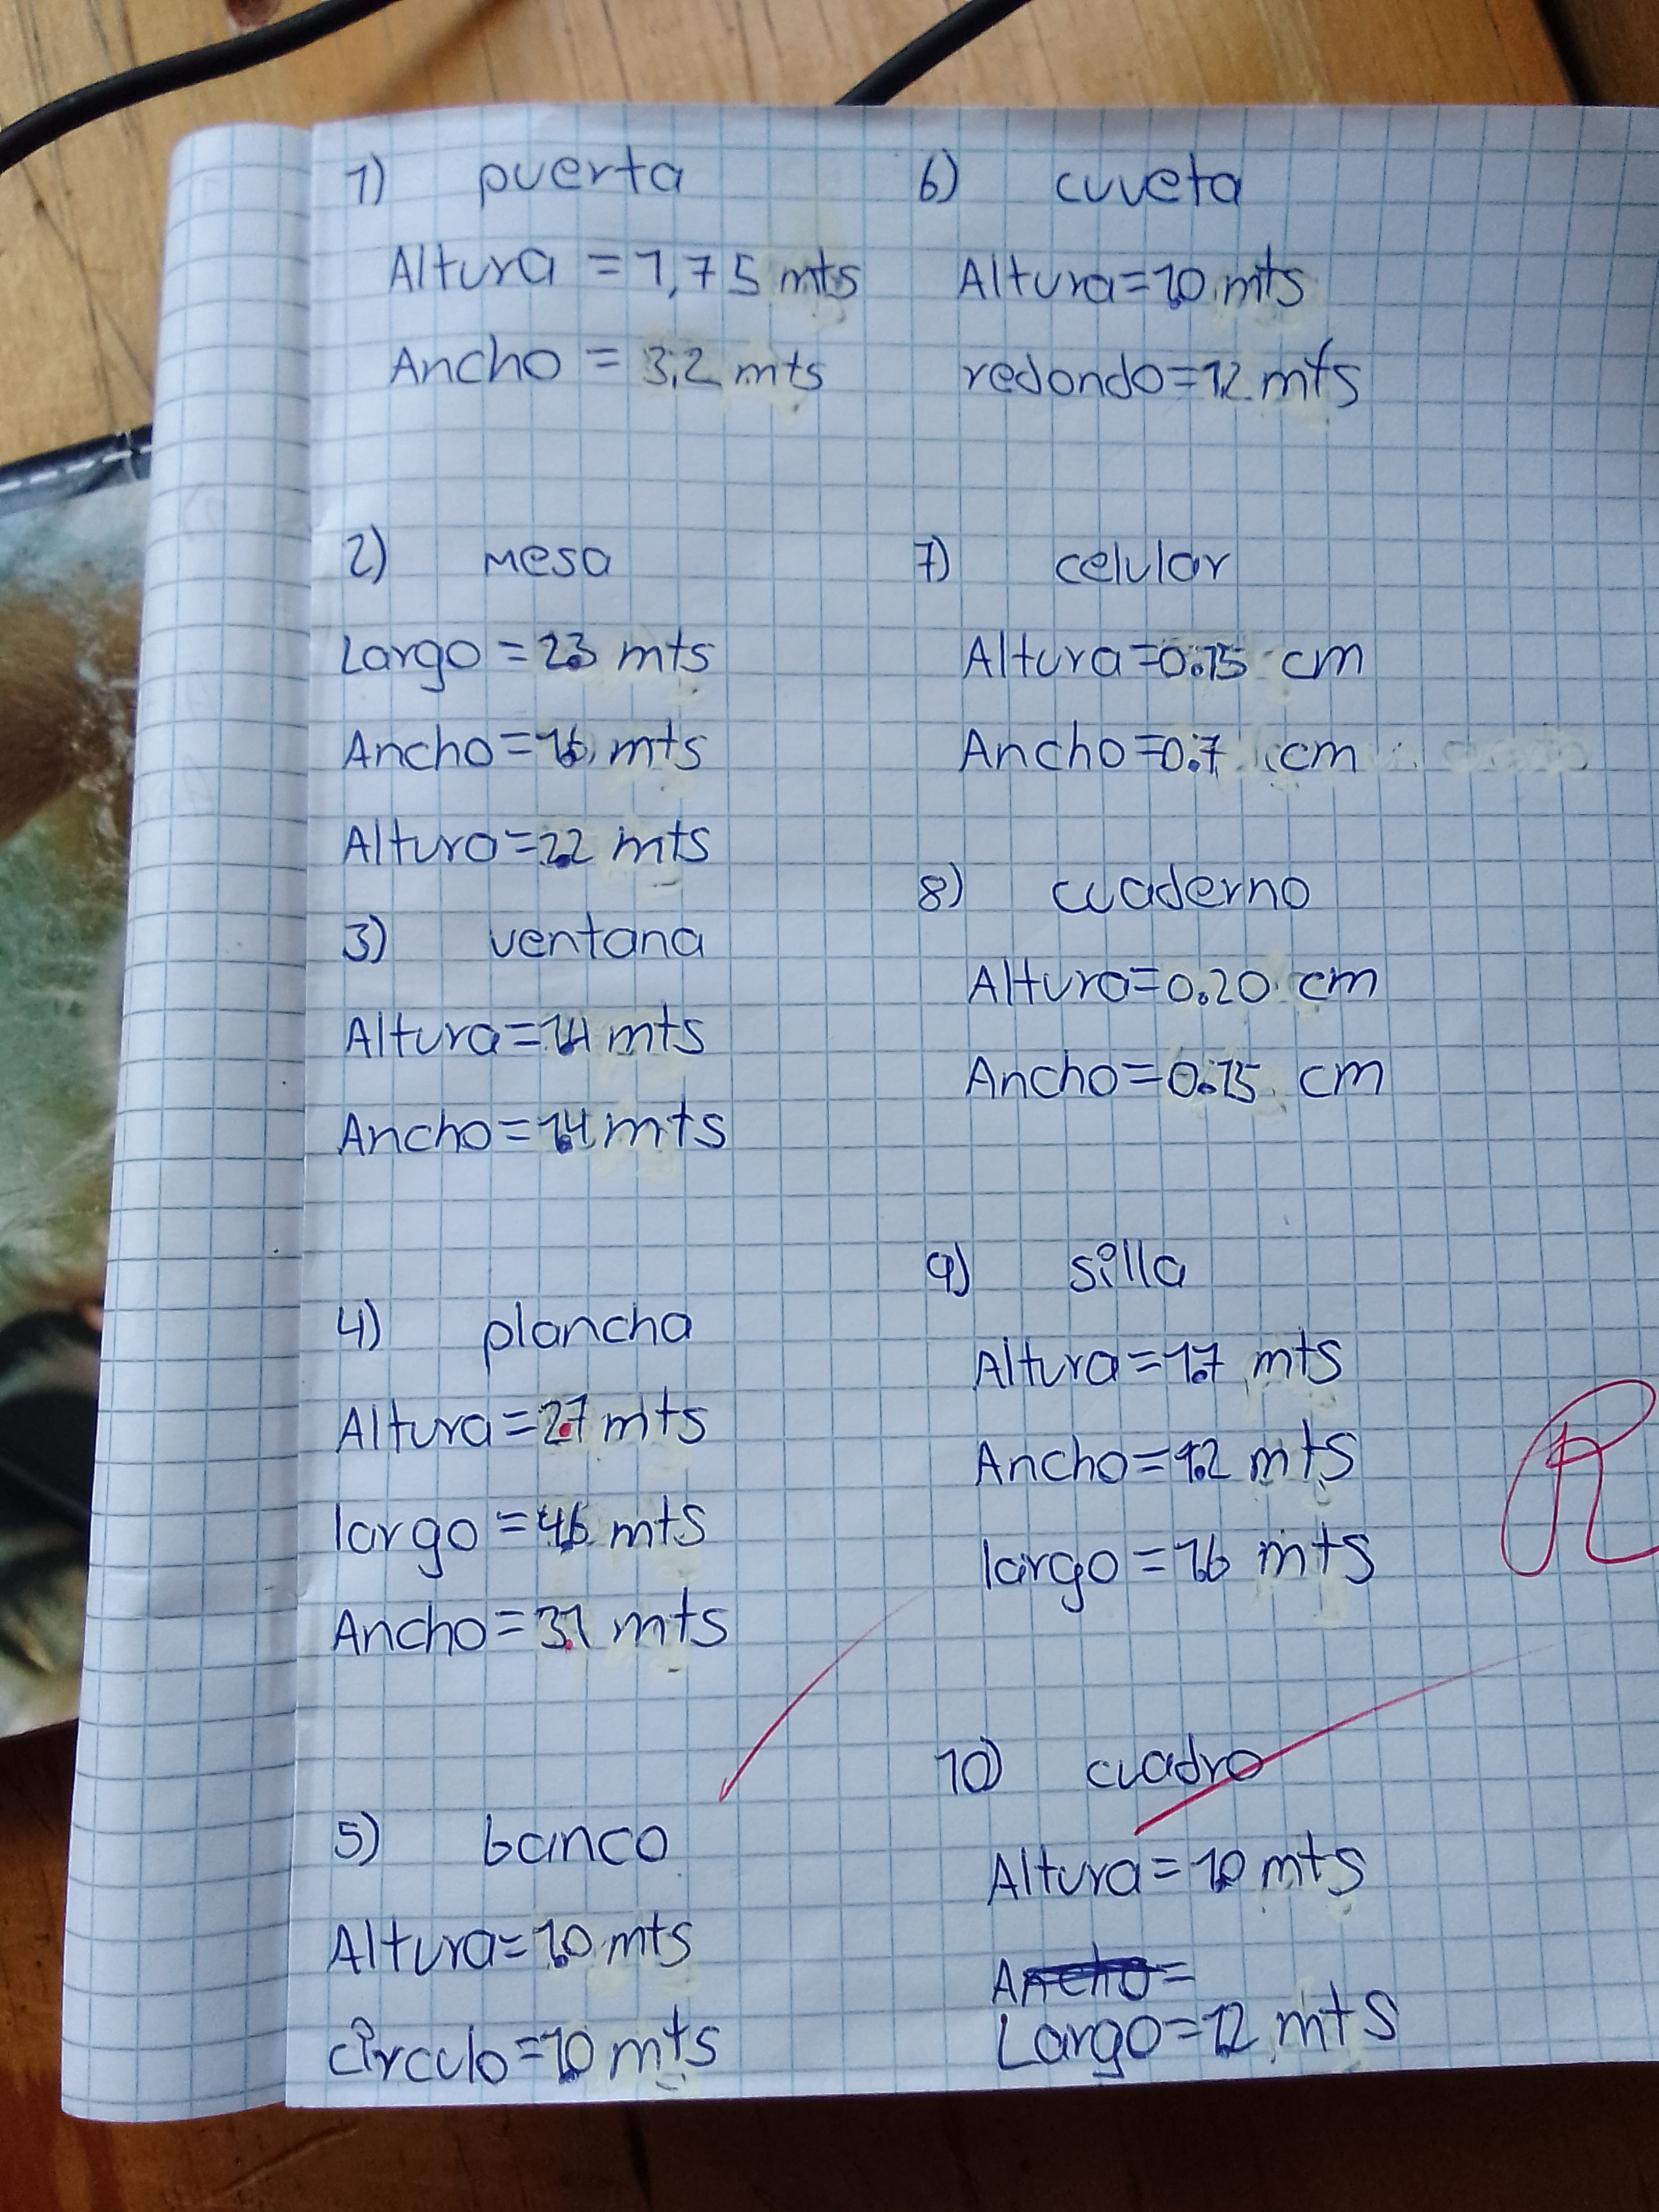 1) puerta
Altura = 1,75 mts
Ancho = 3.2 mts
2) mesa
Largo = 2.3 mts
Ancho = 1.6 mts
Altura = 2.2 mts
3) ventana
Altura = 1.4 mts
Ancho = 1.4 mts
4) plancha
Altura = 2.7 mts
largo = 4.6 mts
Ancho = 3.1 mts
5) banco
Altura = 1.0 mts
círculo = 1.0 mts
6) cuveta
Altura = 1.0 mts
redondo = 1.2 mts
7) celular
Altura = 0.15 cm
Ancho = 0.7 cm
8) cuaderno
Altura = 0.20 cm
Ancho = 0.15 cm
9) silla
Altura = 1.7 mts
Ancho = 1.2 mts
largo = 1.6 mts
R
10) cuadro
Altura = 1.0 mts
Ancho =
Largo = 1.2 mts